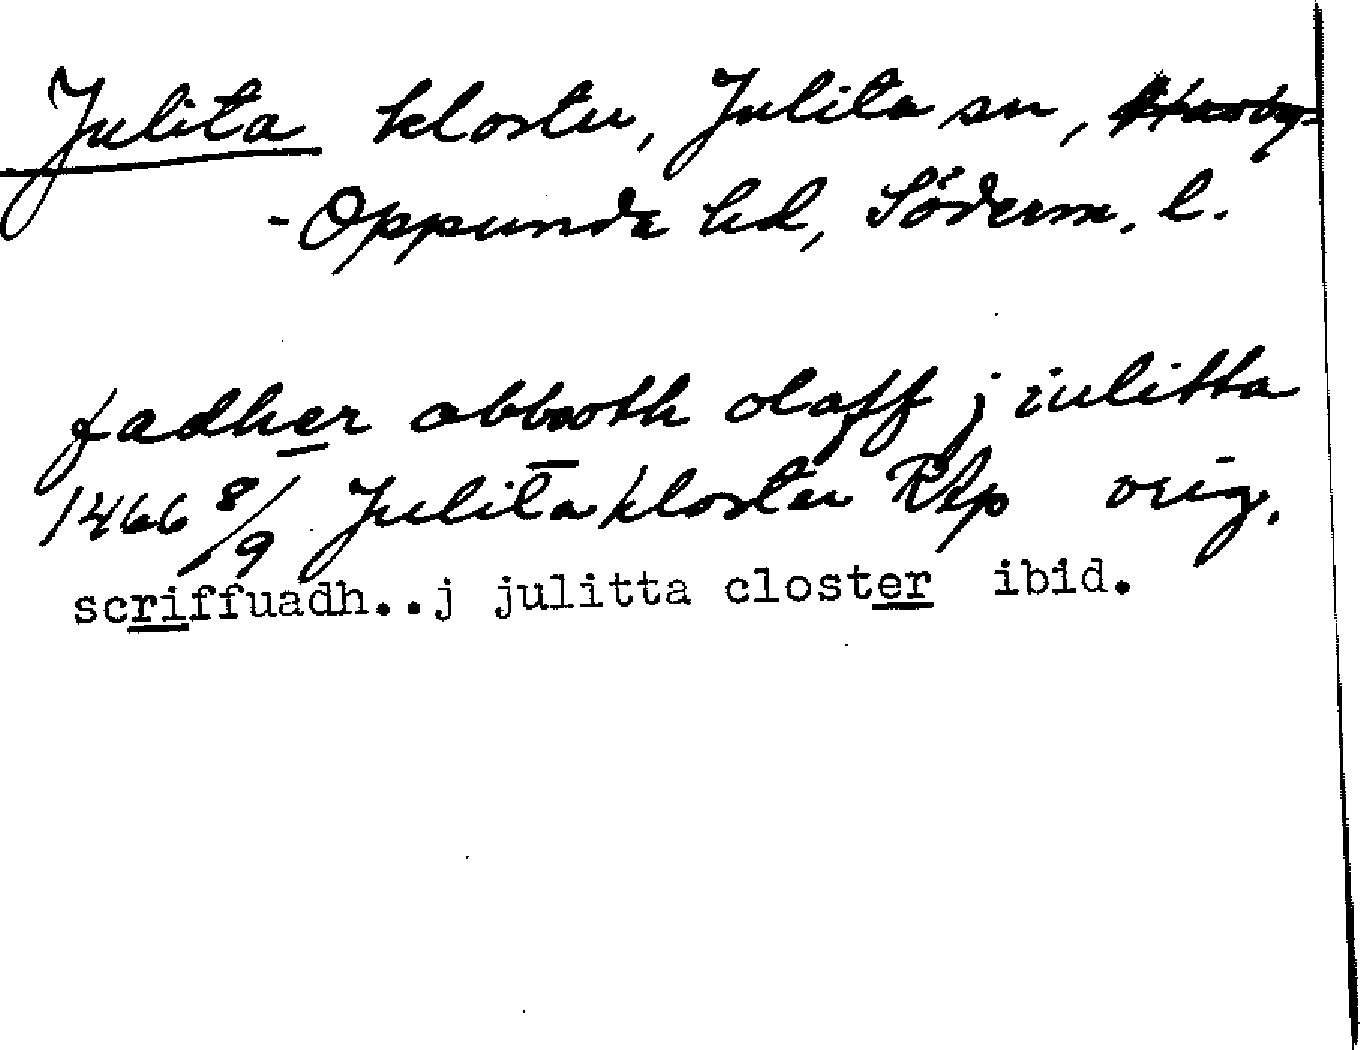 Julita kloster, Julita sn,
-Oppunda hd, Söderm. l.
fadher abbooth olaff j iulitta
1466 8/9 Julita kloster RAp orig.
scriffuadh..j julitta closter ibid.